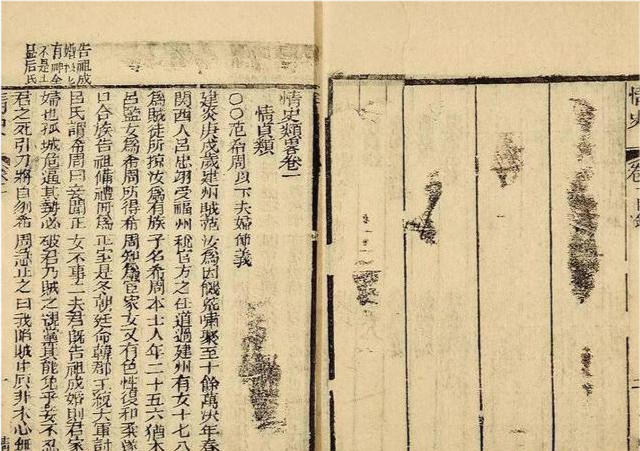 情史
卷
目錄
情史類畧卷一
情貞類
○○范希周以下夫婦節義
建炎庚戌歲建州賊范汝爲因饑荒嘯聚至十餘萬次年春
關西人呂忠翊受福州稅官方之任道過建州有女十七八
爲賊徒所掠汝爲有族子名希周本士人年二十五六猶未
呂監女爲希周所得希周知爲宦家女又有色性復和柔遂
日合族告祖備禮冊爲正室是冬朝廷命韓郡王統大軍討
呂氏謂希周曰妾聞正女不事二夫君既告祖成婚則君家
婦也孤城危逼其勢必破君乃賊之親黨其能免乎妾不忍
君之死引刀將自刎希周急止之曰我陷賊中原非本心無
告祖成
有神
不是
呂氏
情史
卷一